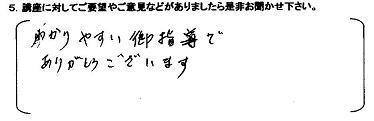 5. 講座に対してご要望やご意見などがありましたら是非お聞かせ下さい。
分かりやすい御指導で
ありがとうございます